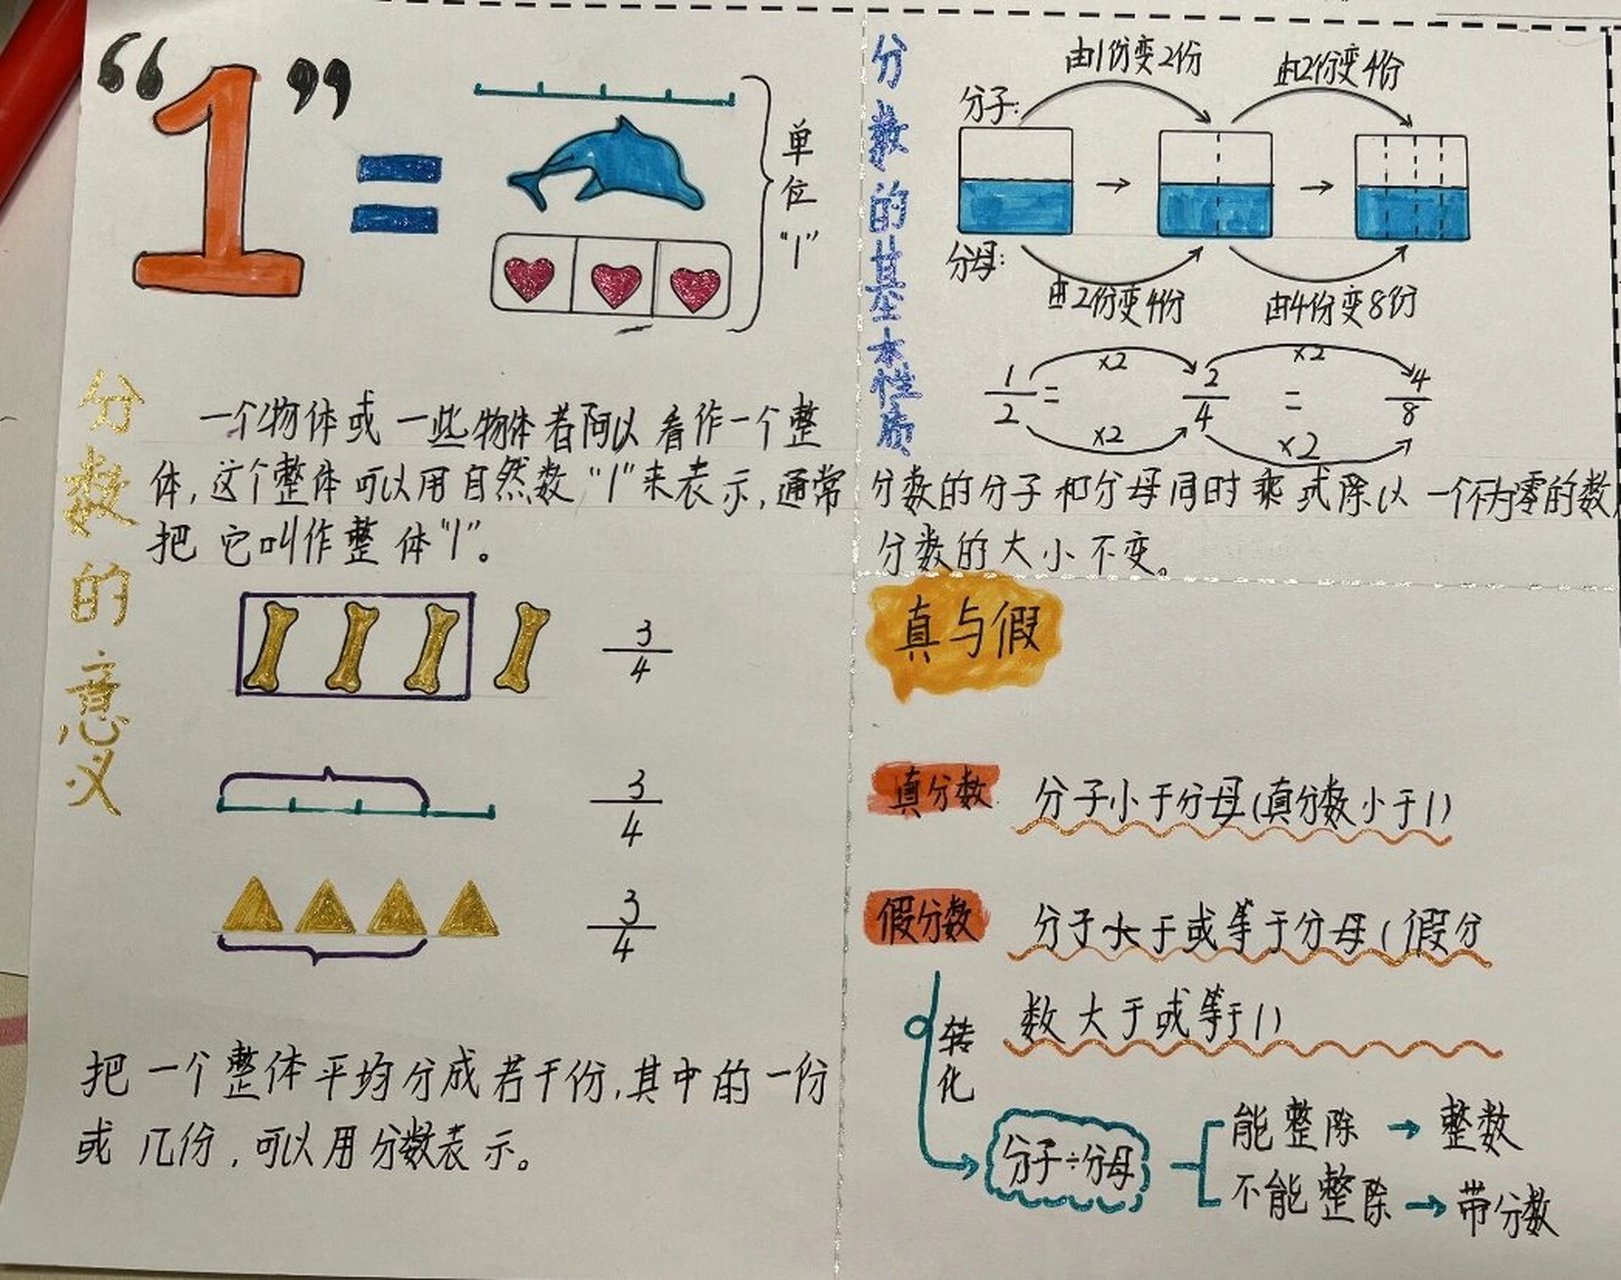 “1” =
单位“1”
分数的意义
一个物体或一些物体者阿以看作一个整
体,这个整体可以用自然数“1”来表示,通常
把它叫作整体“1”。
3/4
3/4
3/4
把一个整体平均分成若干份,其中的一份
或几份,可以用分数表示。
分数的基本性质
由1份变2份 由2份变4份
分子:
→ →
分母:
由2份变4份 由4份变8份
×2 ×2
1/2 = 2/4 = 4/8
×2 ×2
分数的分子和分母同时乘或除以一个不为零的数,
分数的大小不变。
真与假
真分数 分子小于分母(真分数小于1)
假分数 分子大于或等于分母(假分
数大于或等于1)
转化
分子÷分母
能整除→整数
不能整除→带分数